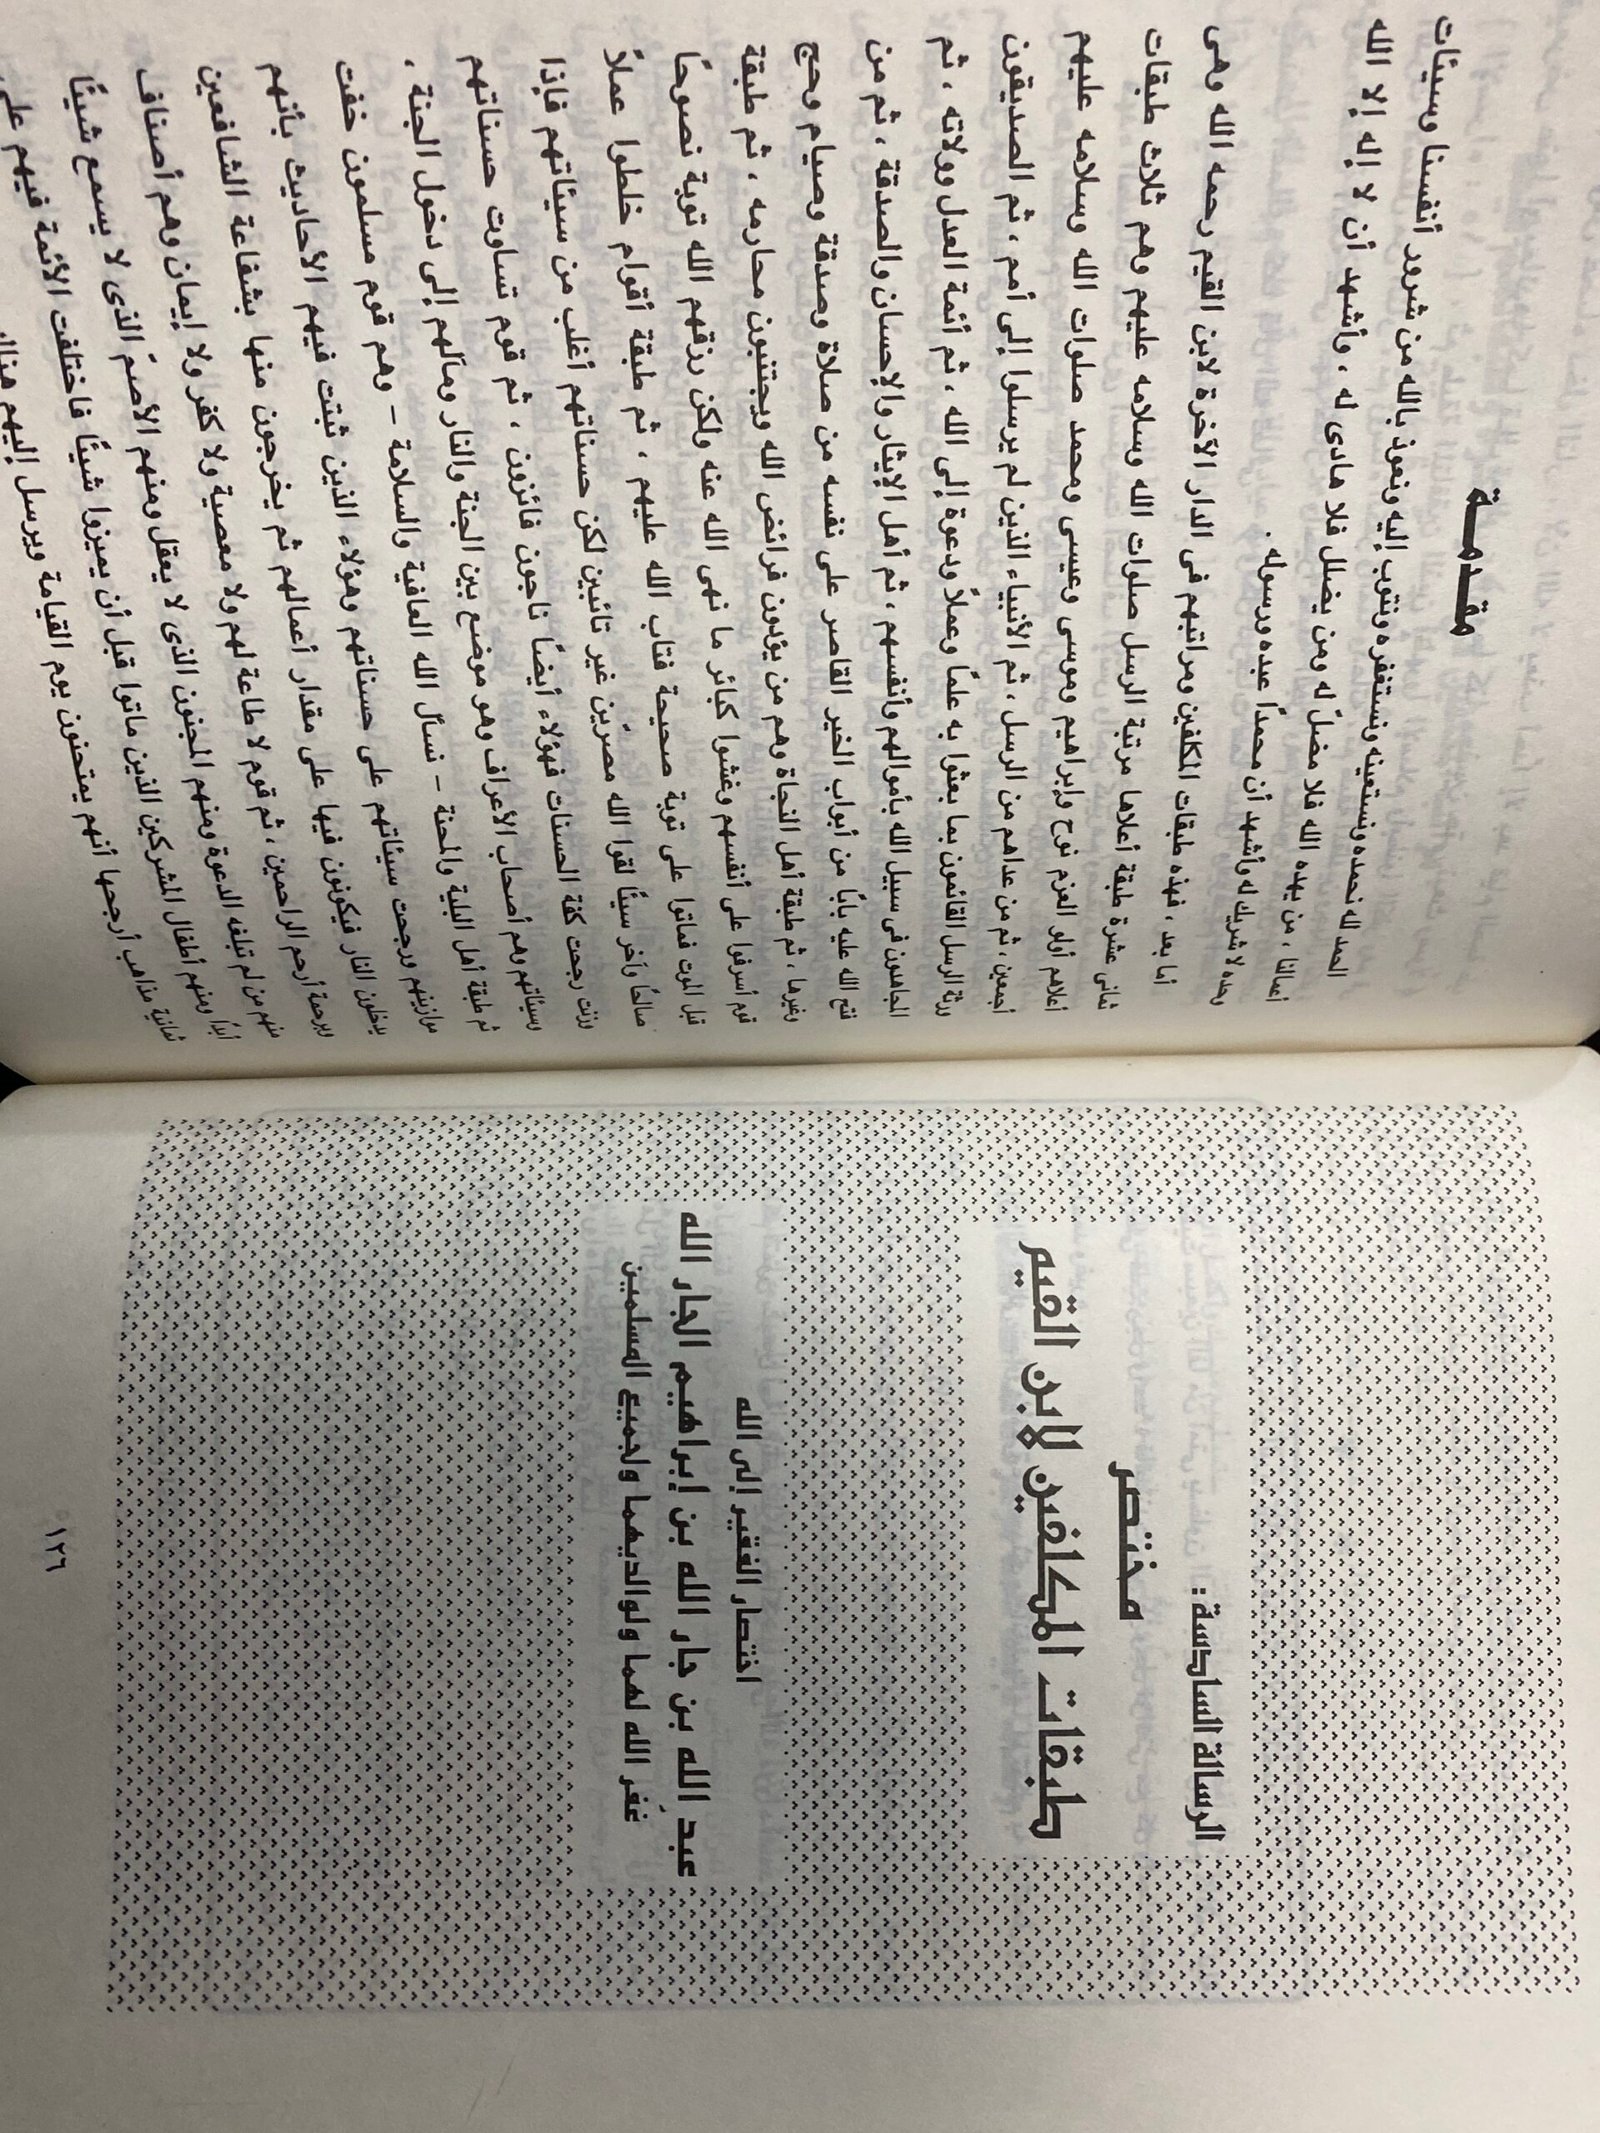 الرسالة السادسة:
مختصر
طبقات المكلفين لابن القيم
اختصار الفقير إلى الله
عبد الله بن جار الله بن إبراهيم الجار الله
غفر الله لهما ولوالديهما ولجميع المسلمين
١٢٦
مقدمــة
الحمد لله نحمده ونستعينه ونستغفره ونتوب إليه ونعوذ بالله من شرور أنفسنا وسيئات
أعمالنا ، من يهده الله فلا مضلّ له ومن يضلل فلا هادى له ، وأشهد أن لا إله إلا الله
وحده لا شريك له وأشهد أن محمدًا عبده ورسوله .
أما بعد ، فهذه طبقات المكلفين ومراتبهم فى الدار الآخرة لابن القيم رحمه الله وهى
ثمانى عشرة طبقة أعلاها مرتبة الرسل صلوات الله وسلامه عليهم وهم ثلاث طبقات
أعلاهم أولو العزم نوح وإبراهيم وموسى وعيسى ومحمد صلوات الله وسلامه عليهم
أجمعين ، ثم من عداهم من الرسل ، ثم الأنبياء الذين لم يرسلوا إلى أمم ، ثم الصديقون
ورثة الرسل القائمون بما بعثوا به علمًا وعملاً ودعوة إلى الله ، ثم أئمة العدل وولاته ، ثم
المجاهدون فى سبيل الله بأموالهم وأنفسهم ، ثم أهل الإيثار والإحسان والصدقة ، ثم من
فتح الله عليه بابًا من أبواب الخير القاصر على نفسه من صلاة وصدقة وصيام وحج
وغيرها ، ثم طبقة أهل النجاة وهم من يؤدون فرائض الله ويجتنبون محارمه ، ثم طبقة
قوم أسرفوا على أنفسهم وغشوا كبائر ما نهى الله عنه ولكن رزقهم الله توبة نصوحًا
قبل الموت فماتوا على توبة صحيحة فتاب الله عليهم ، ثم طبقة أقوام خلطوا عملاً
صالحًا وآخر سيئًا لقوا الله مصرّين غير تائبين لكن حسناتهم أغلب من سيئاتهم فإذا
وزنت رجحت كفة الحسنات فهؤلاء أيضًا ناجون فائزون ، ثم قوم تساوت حسناتهم
وسيئاتهم وهم أصحاب الأعراف وهو موضع بين الجنة والنار ومآلهم إلى دخول الجنة ،
ثم طبقة أهل البلية والمحنة – نسأل الله العافية والسلامة – وهم قوم مسلمون خفت
موازينهم ورجحت سيئاتهم على حسناتهم وهؤلاء الذين ثبتت فيهم الأحاديث بأنهم
يدخلون النار فيكونون فيها على مقدار أعمالهم ثم يخرجون منها بشفاعة الشافعين
وبرحمة أرحم الراحمين ، ثم قوم لا طاعة لهم ولا معصية ولا كفر ولا إيمان وهم أصناف
منهم من لم تبلغه الدعوة ومنهم المجنون الذى لا يعقل ومنهم الأصمّ الذى لا يسمع شيئًا
أبدًا ومنهم أطفال المشركين الذين ماتوا قبل أن يميزوا شيئًا فاختلفت الأئمة فيهم على
ثمانية مذاهب أرجحها أنهم يمتحنون يوم القيامة ويرسل إليهم هناك